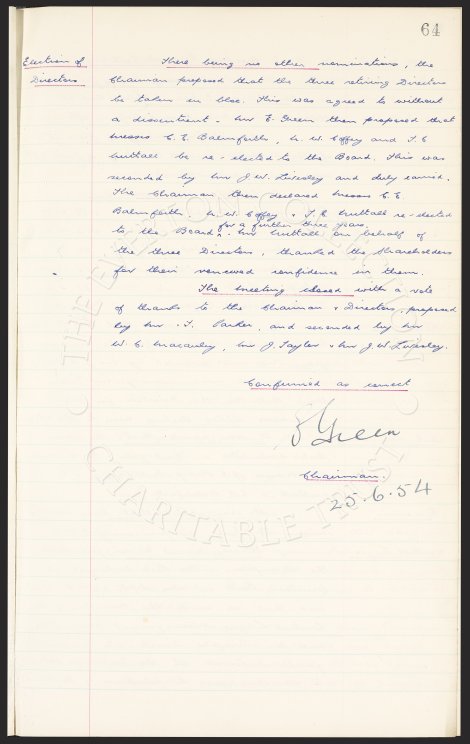 64
Election of
Directors
There being no other nominations, the
Chairman proposed that the three retiring Directors
be taken in bloc. This was agreed to without
a dissentient. Mr E. Green then proposed that
Messrs C. E. Balmforth, W. Coffey and T. E
Nuttall be re-elected to the Board. This was
seconded by Mr J. W. Livesley and duly carried.
The Chairman then declared Messrs C. E.
Balmforth, W. Coffey & T. E Nuttall re-elected
for a further three years.
to the Board. Mr Nuttall on behalf of
the three Directors, thanked the Shareholders
for their renewed confidence in them.
The meeting closed with a vote
of thanks to the Chairman & Directors, proposed
by Mr T. Parker, and seconded by Mr
W. E. Macauley, Mr J. Taylor & Mr J. W. Livesley.
Confirmed as correct
Green
Chairman.
25.6.54
THE EVERTON
CHARITABLE TRUST